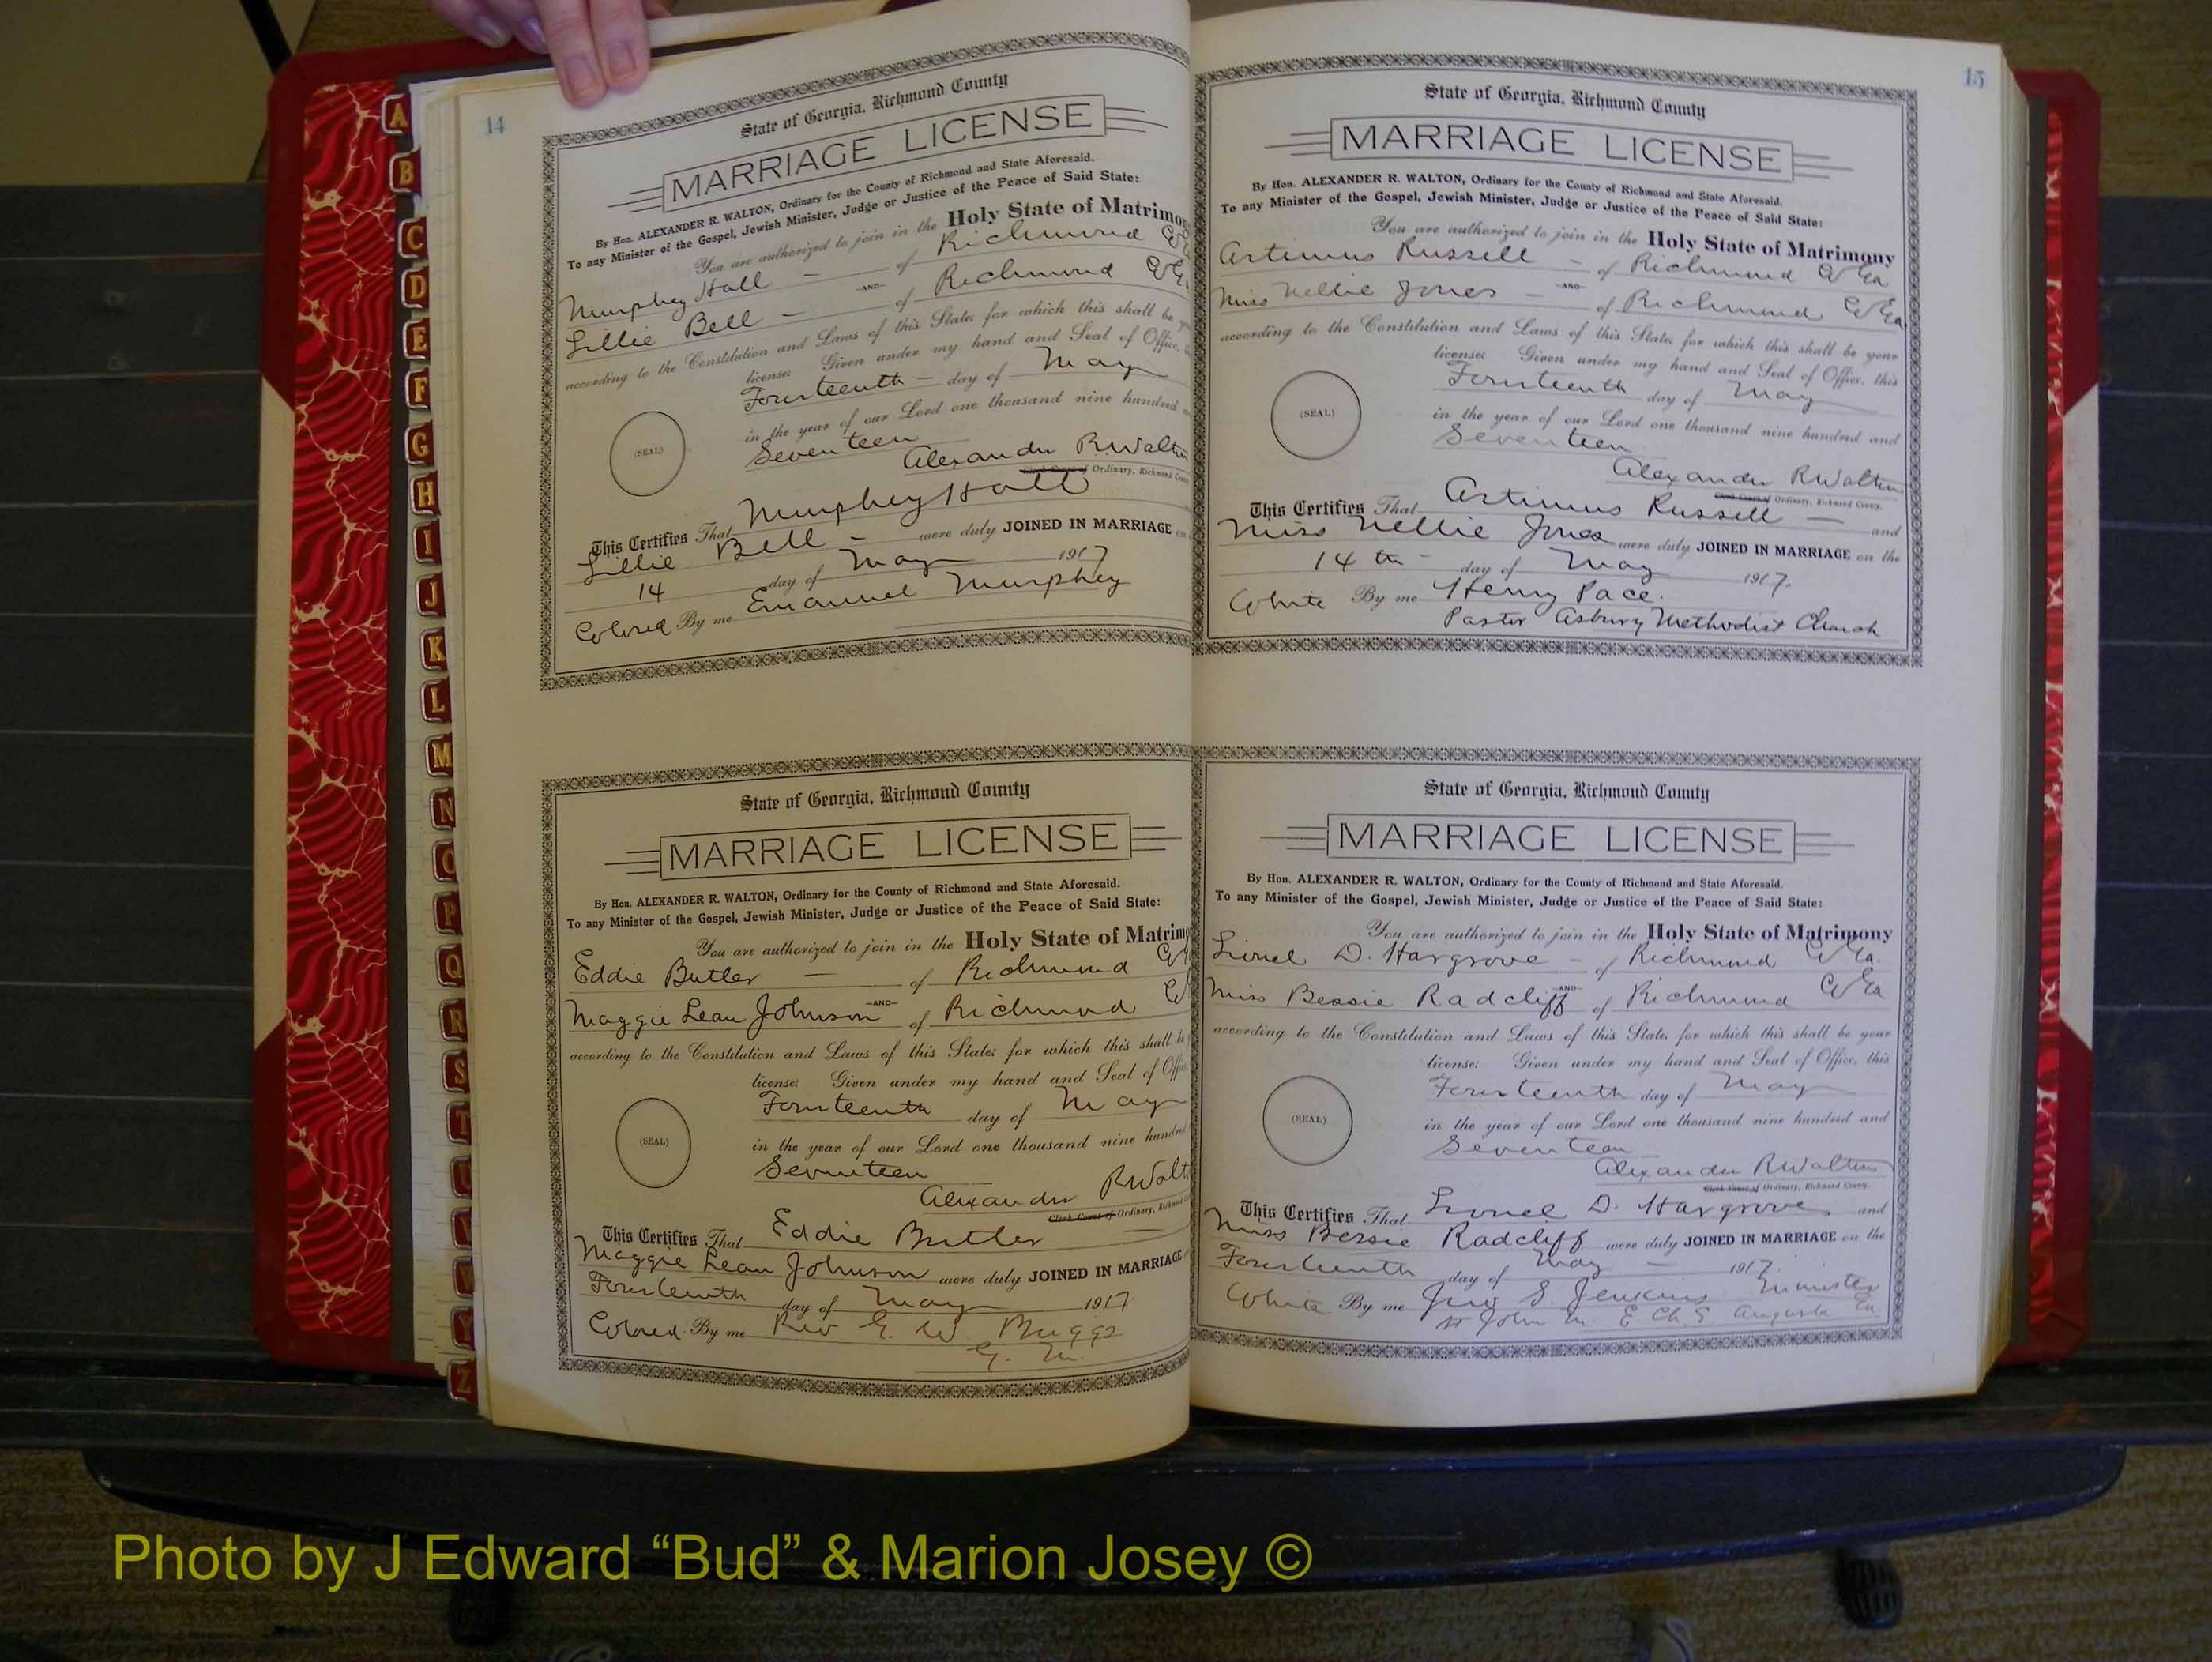 A
B
C
D
E
F
G
H
I
J
K
L
M
N
O
P
Q
R
S
T
U
V
W
Y
Z
14
State of Georgia, Richmond County
MARRIAGE LICENSE
By Hon. ALEXANDER R. WALTON, Ordinary for the County of Richmond and State Aforesaid.
To any Minister of the Gospel, Jewish Minister, Judge or Justice of the Peace of Said State:
You are authorized to join in the Holy State of Matrimon
Murphey Hall — of Richmond Co
—AND—
Lillie Bell — of Richmond Co
according to the Constitution and Laws of this State; for which this shall be
license: Given under my hand and Seal of Office,
Fourteenth — day of May
in the year of our Lord one thousand nine hundred
Seventeen
Alexander R. Walton
Clerk Court of Ordinary, Richmond County
This Certifies That Murphey Hall
Lillie Bell — were duly JOINED IN MARRIAGE on
14 day of May 1917
Colored By me Emanuel Murphey
State of Georgia, Richmond County
MARRIAGE LICENSE
By Hon. ALEXANDER R. WALTON, Ordinary for the County of Richmond and State Aforesaid.
To any Minister of the Gospel, Jewish Minister, Judge or Justice of the Peace of Said State:
You are authorized to join in the Holy State of Matrim
Eddie Butler — of Richmond Co
—AND—
Maggie Lean Johnson of Richmond Co
according to the Constitution and Laws of this State; for which this shall be
license: Given under my hand and Seal of Offic
Fourteenth day of May
in the year of our Lord one thousand nine hundred
Seventeen
Alexander R Walt
Clerk Court of Ordinary, Richmond
This Certifies That Eddie Butler —
Maggie Lean Johnson were duly JOINED IN MARRIAGE
Fourteenth day of May 1917
Colored By me Rev G. W. Buggs
G. M.
15
State of Georgia, Richmond County
MARRIAGE LICENSE
By Hon. ALEXANDER R. WALTON, Ordinary for the County of Richmond and State Aforesaid.
To any Minister of the Gospel, Jewish Minister, Judge or Justice of the Peace of Said State:
You are authorized to join in the Holy State of Matrimony
Artimus Russell — of Richmond Co Ga
—AND—
Miss Nellie Jones — of Richmond Co Ga
according to the Constitution and Laws of this State; for which this shall be your
license: Given under my hand and Seal of Office, this
(SEAL)
Fourteenth day of May
in the year of our Lord one thousand nine hundred and
Seventeen
Alexander R Walton
Clerk Court of Ordinary, Richmond County.
This Certifies That Artimus Russell — and
Miss Nellie Jones were duly JOINED IN MARRIAGE on the
14th — day of May 1917.
White By me Henry Pace.
Pastor Asbury Methodist Church
State of Georgia, Richmond County
MARRIAGE LICENSE
By Hon. ALEXANDER R. WALTON, Ordinary for the County of Richmond and State Aforesaid.
To any Minister of the Gospel, Jewish Minister, Judge or Justice of the Peace of Said State:
You are authorized to join in the Holy State of Matrimony
Lionel D. Hargrove — of Richmond Co Ga.
—AND—
Miss Bessie Radcliff of Richmond Co Ga
according to the Constitution and Laws of this State; for which this shall be your
license: Given under my hand and Seal of Office, this
(SEAL)
Fourteenth day of May
in the year of our Lord one thousand nine hundred and
Seventeen
Alexander R Walton
Clerk Court of Ordinary, Richmond County.
This Certifies That Lionel D. Hargrove and
Miss Bessie Radcliff were duly JOINED IN MARRIAGE on the
Fourteenth day of May — 1917.
White By me Jno S. Jenkins Minister
St John M. E Ch. S Augusta Ga
Photo by J Edward “Bud” & Marion Josey ©